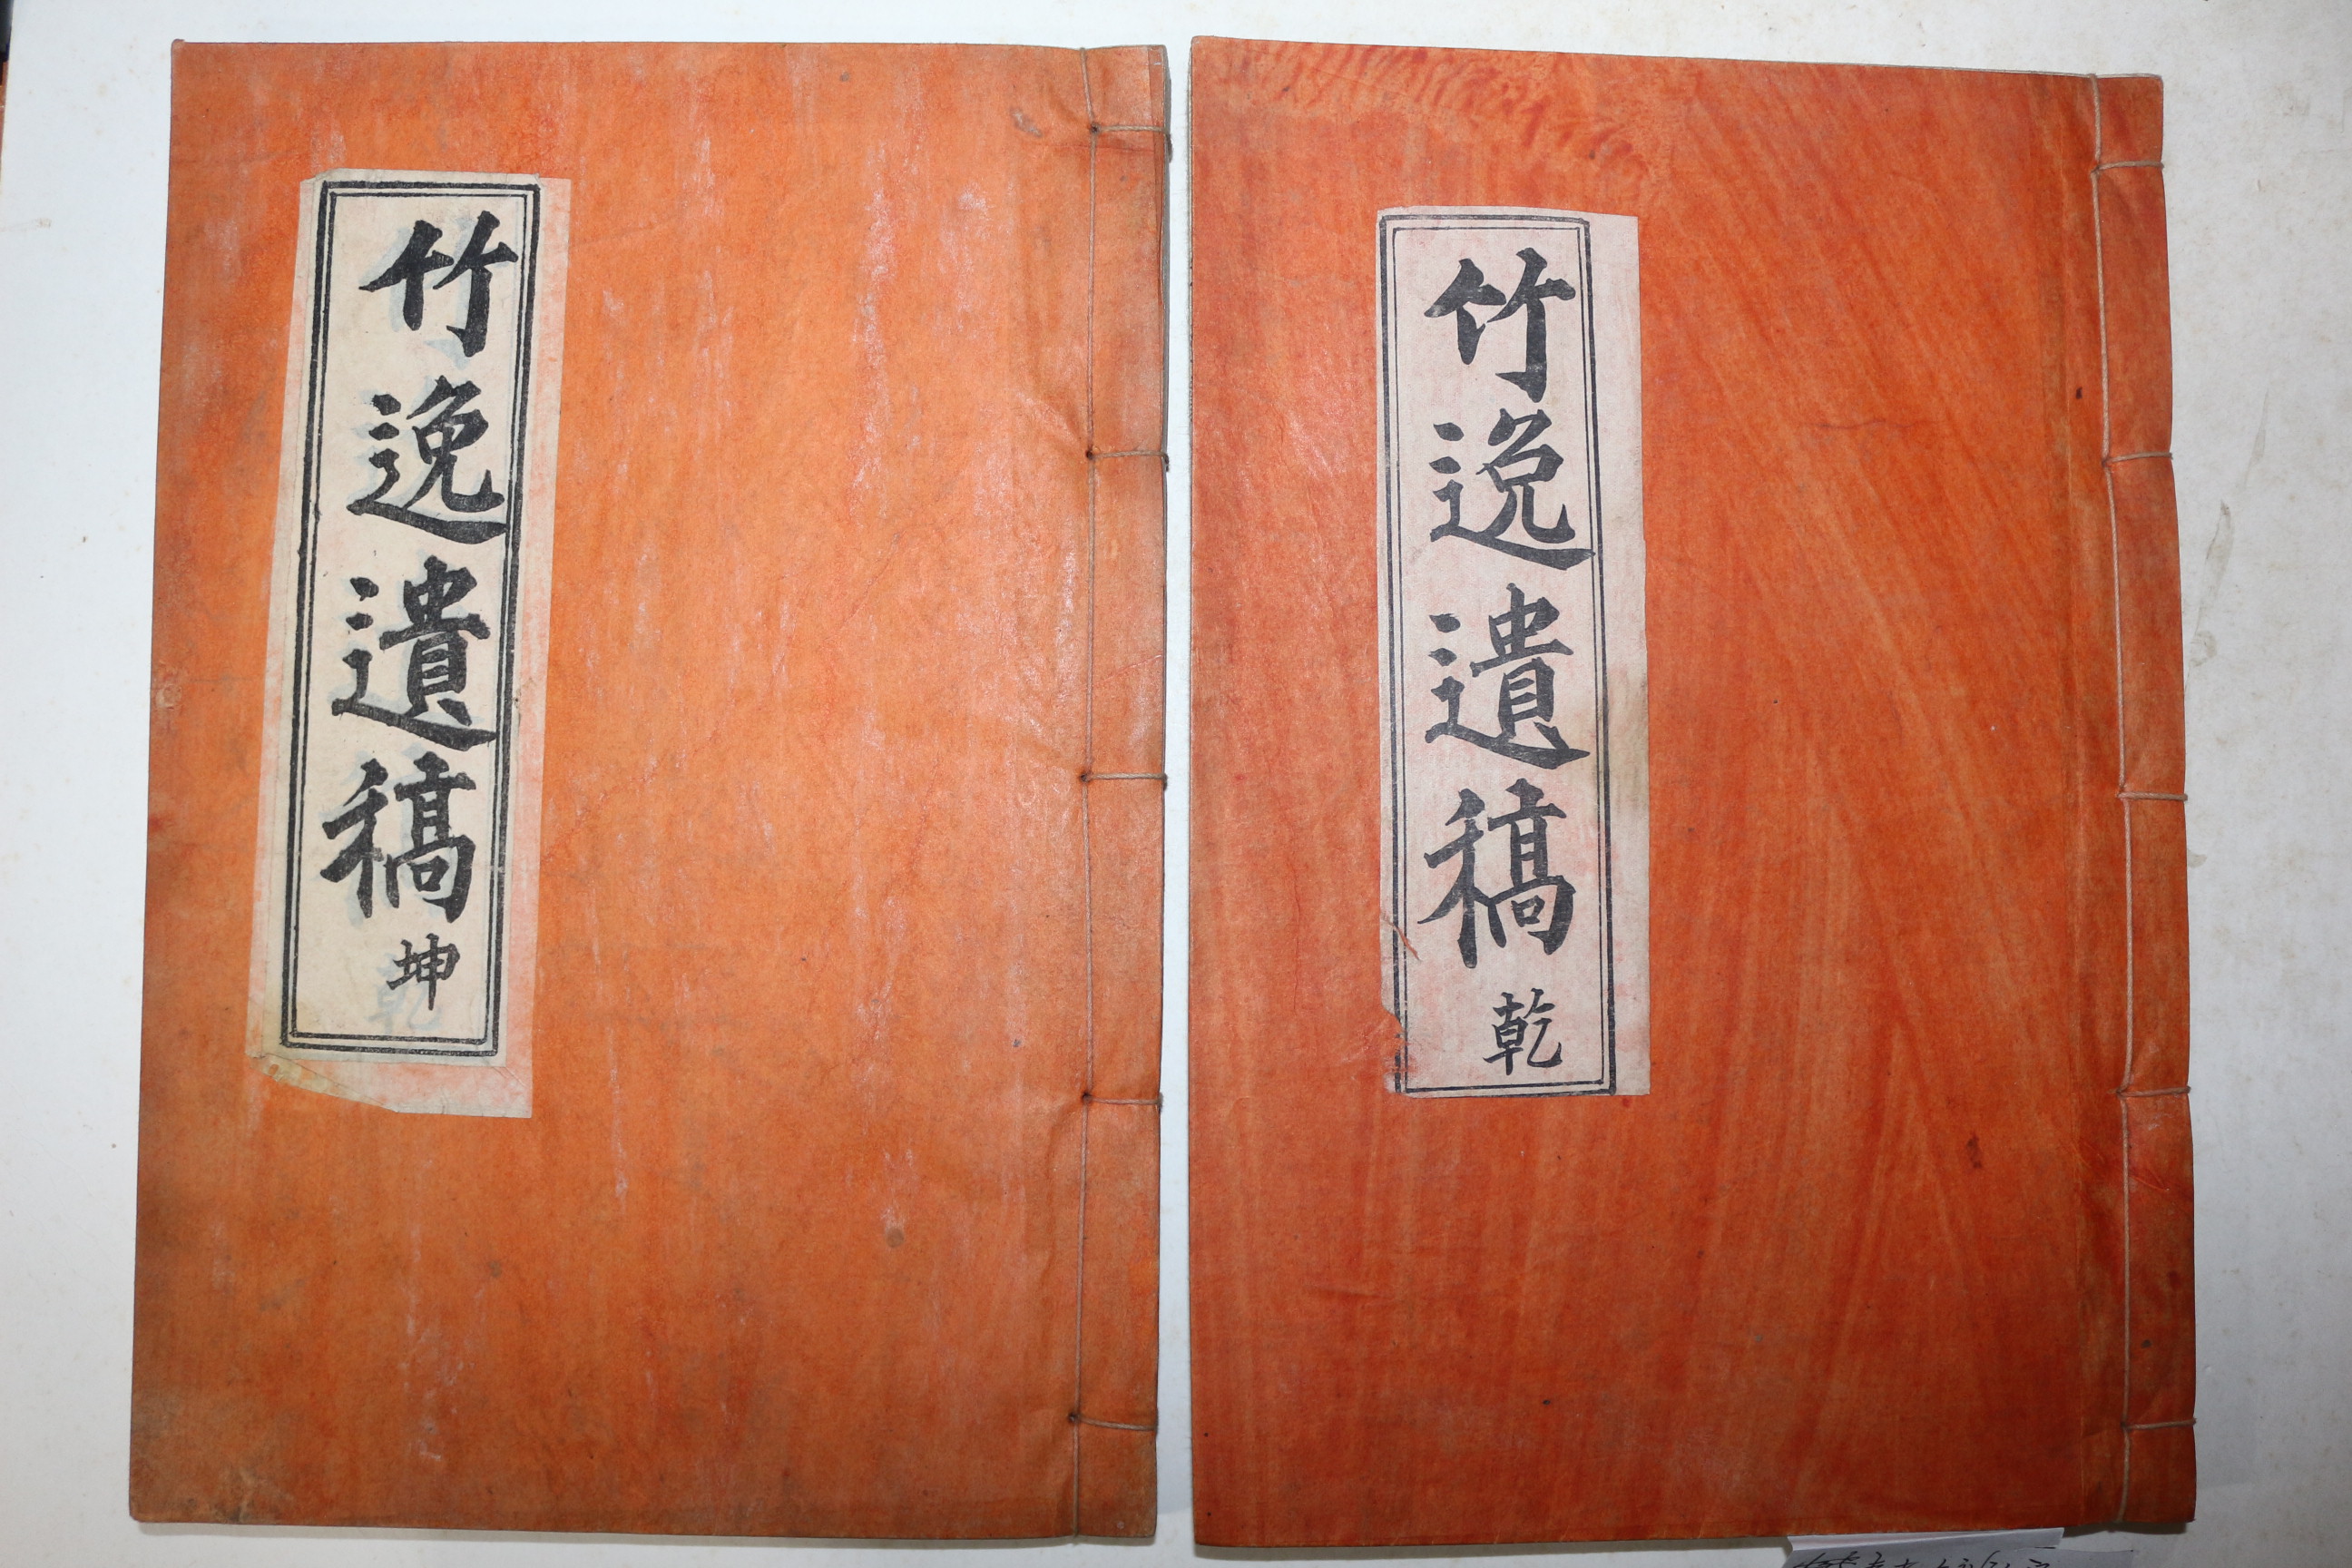 竹逸遺稿 乾
竹逸遺稿 坤